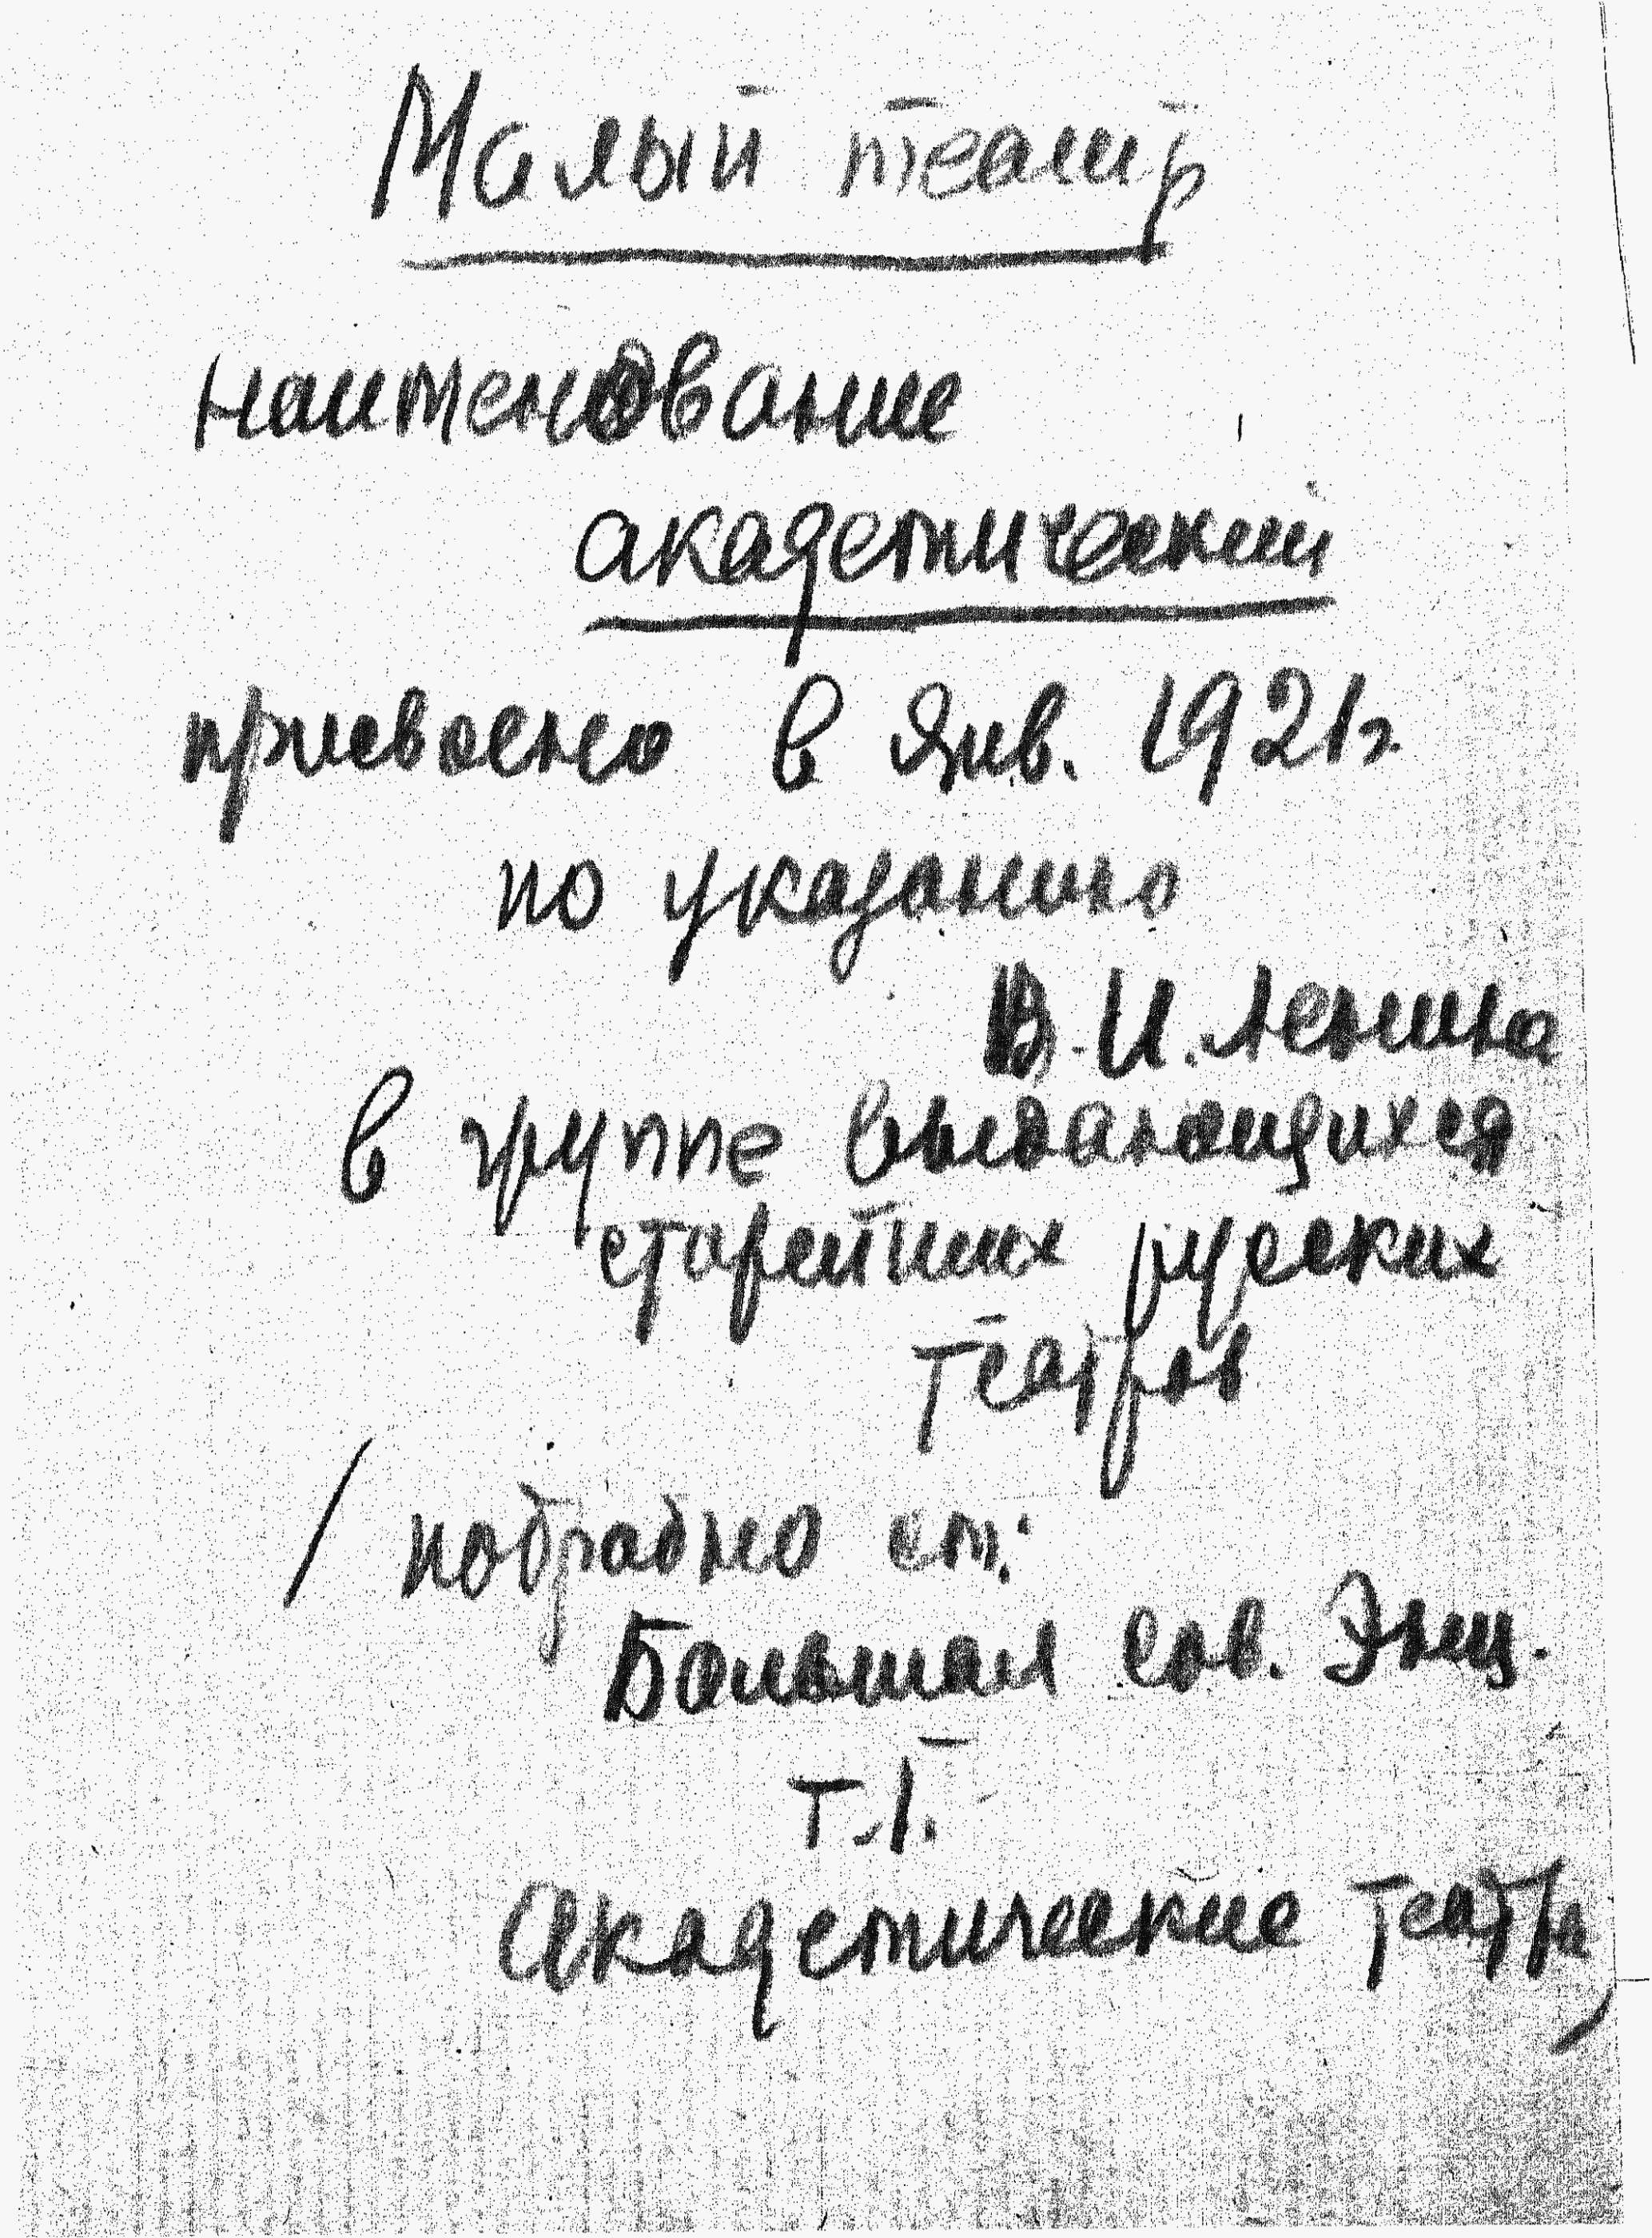 Малый театр
наименование
академический
присвоено в янв. 1921г.
по указанию
В. И. Ленина
в группе выдающихся
старейших русских
театров
/ подробно см:
Большая Сов. Энц.
т. 1.
Академические театры